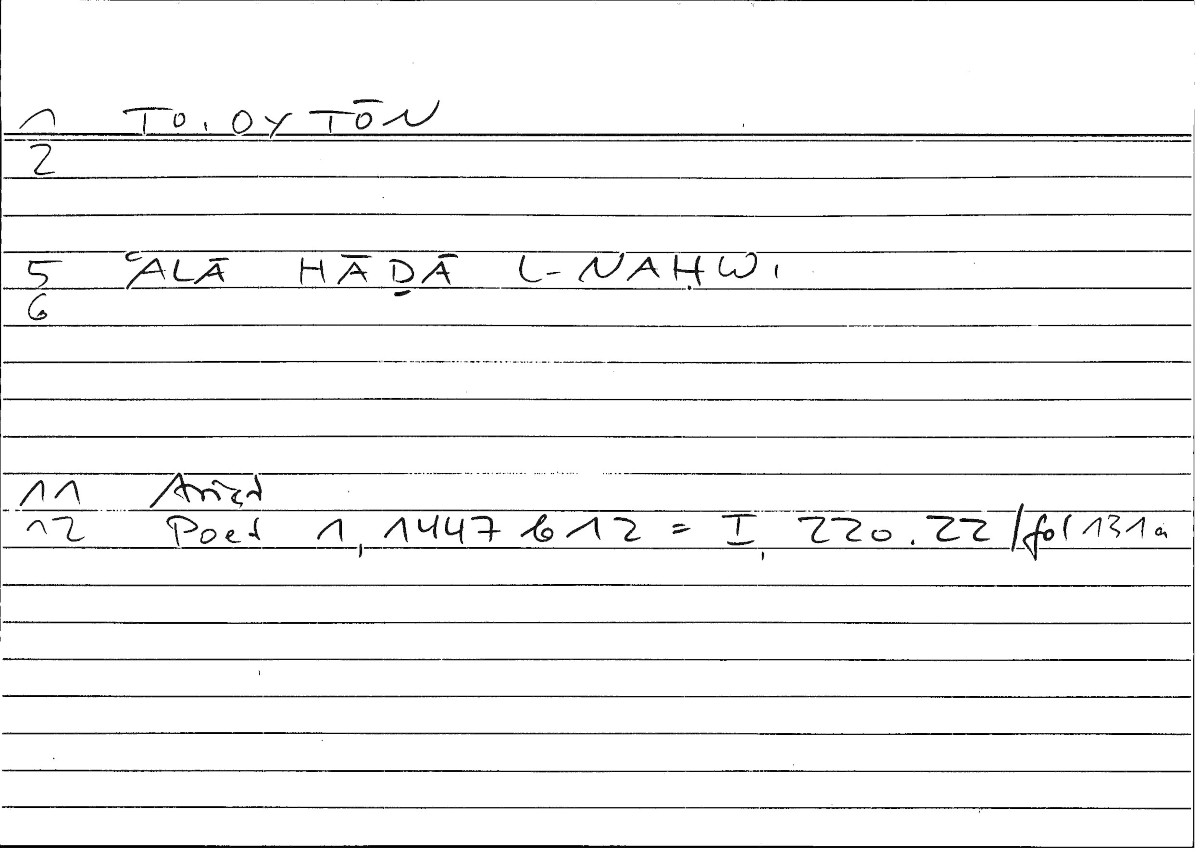 1 TO.OYTŌN
2
5 ʿALĀ HĀḎĀ L-NAḤW.
6
11 Arist
12 Poet 1, 1447 b 12 = I, 220.22 / fol 131a